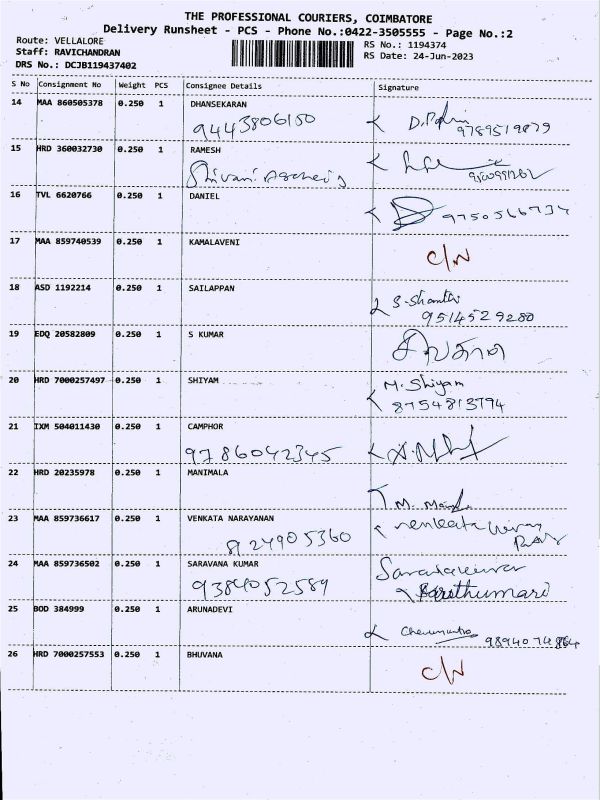 THE PROFESSIONAL COURIERS, COIMBATORE
Delivery Runsheet - PCS - Phone No.:0422-3505555 - Page No.:2
Route: VELLALORE
RS No.: 1194374
Staff: RAVICHANDRAN
RS Date: 24-Jun-2023
DRS No.: DCJB119437402
S No Consignment No Weight PCS Consignee Details Signature
14 MAA 860505378 0.250 1 DHANSEKARAN
9443806150 9789519879
15 HRD 360032730 0.250 1 RAMESH
Shivani
16 TVL 6620766 0.250 1 DANIEL
9750566734
17 MAA 859740539 0.250 1 KAMALAVENI
C/N
18 ASD 1192214 0.250 1 SAILAPPAN
S. Shanthi
9514529280
19 EDQ 20582809 0.250 1 S KUMAR
20 HRD 7000257497 0.250 1 SHIYAM M. Shiyam
8754813794
21 IXM 504011430 0.250 1 CAMPHOR
9786042345
22 HRD 20235978 0.250 1 MANIMALA
M.
23 MAA 859736617 0.250 1 VENKATA NARAYANAN
8124905360
24 MAA 859736502 0.250 1 SARAVANA KUMAR
9384052589
25 BOD 384999 0.250 1 ARUNADEVI
9894074864
26 HRD 7000257553 0.250 1 BHUVANA
C/N